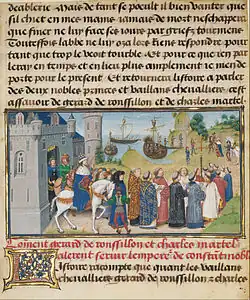 deablerie. Mais de tant se peoult il bien vanter que
sil chiet en mes mains iamais de mort neschappera
que finer ne luy face ses iours par griefz tourmens
Touteffois labbe ne luy osa lors riens respondre pour
tant que trop le veoit trouble. Et pour ce que len par
lera en temps et en lieu plus amplement ie men de
porte pour le present. Et retournera listoire a parler
des deux nobles princes et vaillans chevalliers cest
assavoir de gerard de roussillon et de charles martel
Coment gerard de roussillon et charles martel
alerent servir lempere de constantinoble
Listoire racompte que quant les vaillans
chevalliers gerard de roussillon et charles